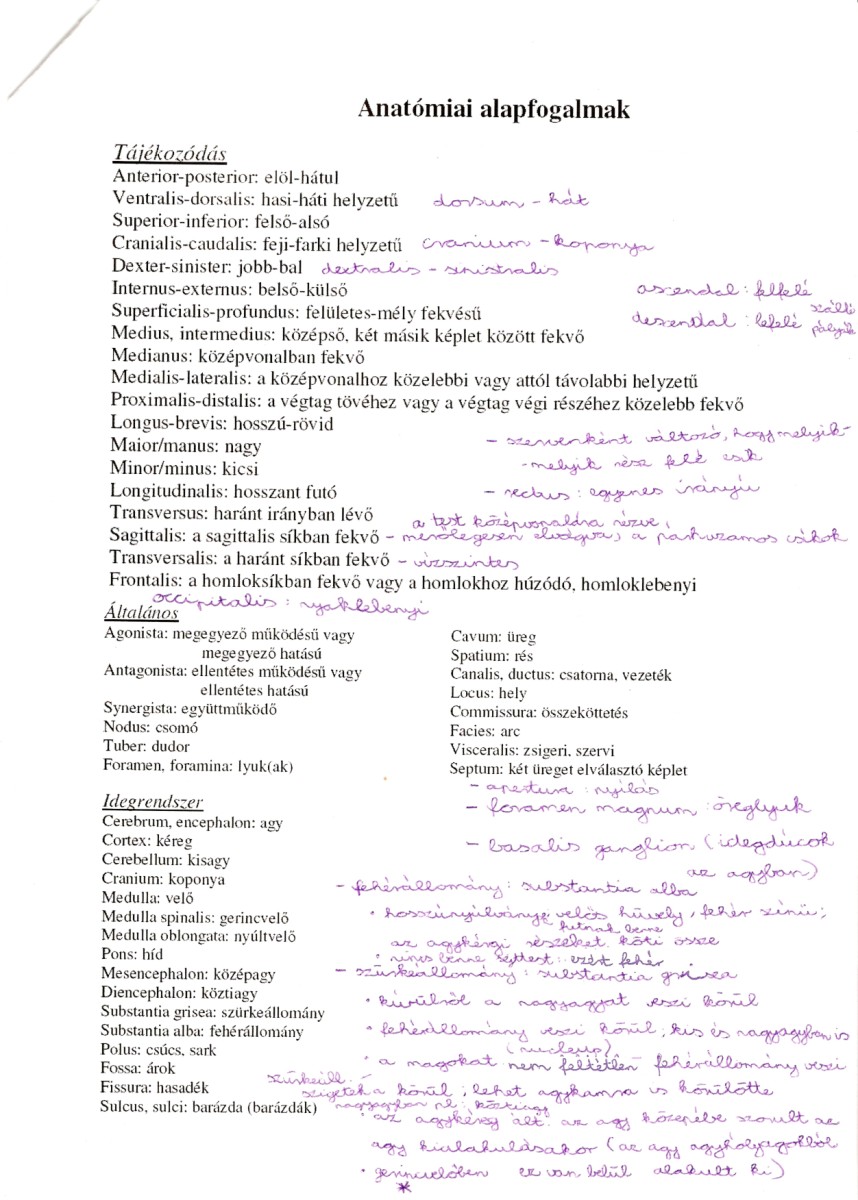 Anatómiai alapfogalmak
Tájékozódás
Anterior-posterior: elöl-hátul
Ventralis-dorsalis: hasi-háti helyzetű dorsum - hát
Superior-inferior: felső-alsó
Cranialis-caudalis: feji-farki helyzetű cranium - koponya
Dexter-sinister: jobb-bal dextralis - sinistralis
Internus-externus: belső-külső ascendal: felfelé
Superficialis-profundus: felületes-mély fekvésű descendal: lefelé szálló pályák
Medius, intermedius: középső, két másik képlet között fekvő
Medianus: középvonalban fekvő
Medialis-lateralis: a középvonalhoz közelebbi vagy attól távolabbi helyzetű
Proximalis-distalis: a végtag tövéhez vagy a végtag végi részéhez közelebb fekvő
Longus-brevis: hosszú-rövid
Maior/manus: nagy - szervenként változó, hogy melyik-
Minor/minus: kicsi - melyik rész felé esik
Longitudinalis: hosszant futó - rectus: egyenes irányú
Transversus: haránt irányban lévő
a test középvonalára nézve,
Sagittalis: a sagittalis síkban fekvő - merőlegesen elvágva, a párhuzamos síkok
Transversalis: a haránt síkban fekvő - vízszintes
Frontalis: a homloksíkban fekvő vagy a homlokhoz húzódó, homloklebenyi
occipitalis: nyaklebenyi
Általános
Agonista: megegyező működésű vagy
megegyező hatású
Antagonista: ellentétes működésű vagy
ellentétes hatású
Synergista: együttműködő
Nodus: csomó
Tuber: dudor
Foramen, foramina: lyuk(ak)
Cavum: üreg
Spatium: rés
Canalis, ductus: csatorna, vezeték
Locus: hely
Commissura: összeköttetés
Facies: arc
Visceralis: zsigeri, szervi
Septum: két üreget elválasztó képlet
- apertura: nyílás
- foramen magnum: öreglyuk
- basalis ganglion (idegdúcok
az agyban)
Idegrendszer
Cerebrum, encephalon: agy
Cortex: kéreg
Cerebellum: kisagy
Cranium: koponya
Medulla: velő
Medulla spinalis: gerincvelő
Medulla oblongata: nyúltvelő
Pons: híd
Mesencephalon: középagy
Diencephalon: köztiagy
Substantia grisea: szürkeállomány
Substantia alba: fehérállomány
Polus: csúcs, sark
Fossa: árok
Fissura: hasadék
Sulcus, sulci: barázda (barázdák)
- fehérállomány: substantia alba
• hosszúnyúlványú velős hüvely, fehér színű;
futnak benne
az agykérgi részeket köti össze
• nincs benne sejttest: ezért fehér
- szürkeállomány: substantia grisea
• kívülről a nagyagyat veszi körül
• fehérállomány veszi körül; kis és nagyagyban is
(nucleus)
• a magokat nem feltétlen fehérállomány veszi
körül, lehet agykamra is körülötte
szürkeáll.
szigetek a
nagyagyban pl. köztiagy
• az agykéreg ált. az agy közepébe szorult az
agy kialakulásakor (az agy agyhólyagokból
alakult ki)
• gerincvelőben ez van belül
*